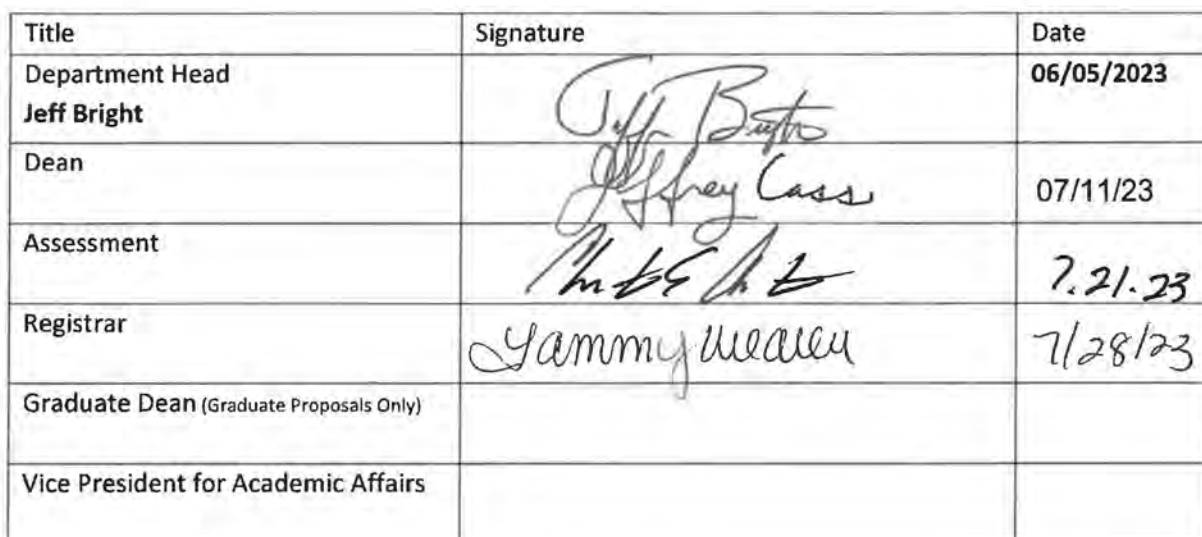 Title Signature Date
Department Head 06/05/2023
Jeff Bright Jeff Bright
Dean Jeffrey Cass 07/11/23
Assessment 7.21.23
Registrar Tammy Weaver 7/28/23
Graduate Dean (Graduate Proposals Only)
Vice President for Academic Affairs